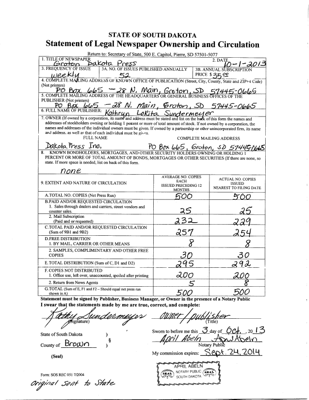 STATE OF SOUTH DAKOTA
Statement of Legal Newspaper Ownership and Circulation
Return to: Secretary of State, 500 E. Capitol, Pierre, SD 57501-5077
1. TITLE OF NEWSPAPER
Groton Dakota Press
2. DATE
10-1-2013
3. FREQUENCY OF ISSUE
weekly
3A. NO. OF ISSUES PUBLISHED ANNUALLY
52
3B. ANNUAL SUBSCRIPTION
PRICE $
4. COMPLETE MAILING ADDRESS OF KNOWN OFFICE OF PUBLICATION (Street, City, County, State and ZIP+4 Code)
(Not printers)
PO Box 665 - 28 N. Main, Groton, SD 57445-0665
5. COMPLETE MAILING ADDRESS OF THE HEADQUARTERS OR GENERAL BUSINESS OFFICES OF THE
PUBLISHER (Not printer)
PO Box 665 - 28 N. Main, Groton, SD 57445-0665
6. FULL NAME OF PUBLISHER:
Kathryn LeKita Sundermeyer
7. OWNER (If owned by a corporation, its name and address must be stated and
addresses of stockholders owning or holding 1 percent or more of total amount of stock. If not owned by a corporation, the
names and addresses of the individual owners must be given. If owned by a partnership or other unincorporated firm, its name
and address, as well as that of each individual must be given.
FULL NAME
COMPLETE MAILING ADDRESS
Dakota Press Inc.
PO Box 665, Groton, SD 57445-0665
8. KNOWN BONDHOLDERS, MORTGAGEES, AND OTHER SECURITY HOLDERS OWNING OR HOLDING 1
PERCENT OR MORE OF TOTAL AMOUNT OF BONDS, MORTGAGES OR OTHER SECURITIES (If there are none, so
state. If more space is needed, list on back of this form.
none
9. EXTENT AND NATURE OF CIRCULATION
AVERAGE NO. COPIES
EACH
ISSUED PRECEDING 12
MONTHS
ACTUAL NO. COPIES
ISSUED
NEAREST TO FILING DATE
A. TOTAL NO. COPIES (Net Press Run)
500
500
B. PAID AND/OR REQUESTED CIRCULATION
1. Sales through dealers and carriers, street vendors and
counter sales.
25
25
2. Mail Subscription
(Paid and or requested)
232
229
C. TOTAL PAID AND/OR REQUESTED CIRCULATION
(Sum of 9B1 and 9B2)
257
254
D. FREE DISTRIBUTION
1. BY MAIL, CARRIER OR OTHER MEANS
8
8
2. SAMPLES, COMPLIMENTARY AND OTHER FREE
COPIES
30
30
E. TOTAL DISTRIBUTION (Sum of C, D1 and D2)
295
292
F. COPIES NOT DISTRIBUTED
1. Office use, left over, unaccounted, spoiled after printing
200
200
2. Return from News Agents
5
8
500
500
Statement must be signed by Publisher, Business Manager, or Owner in the presence of a Notary Public
I swear that the statements made by me are true, correct, and complete:
Kathy Sundermeyer
(Signature)
owner/publisher
(Title)
State of South Dakota
County of Brown
(Seal)
Sworn to before me this 3 day of Oct. 20 13
April Abeln
Notary Public
My commission expires: Sept. 24, 2014
APRIL ABELN
NOTARY PUBLIC
SOUTH DAKOTA
original sent to State